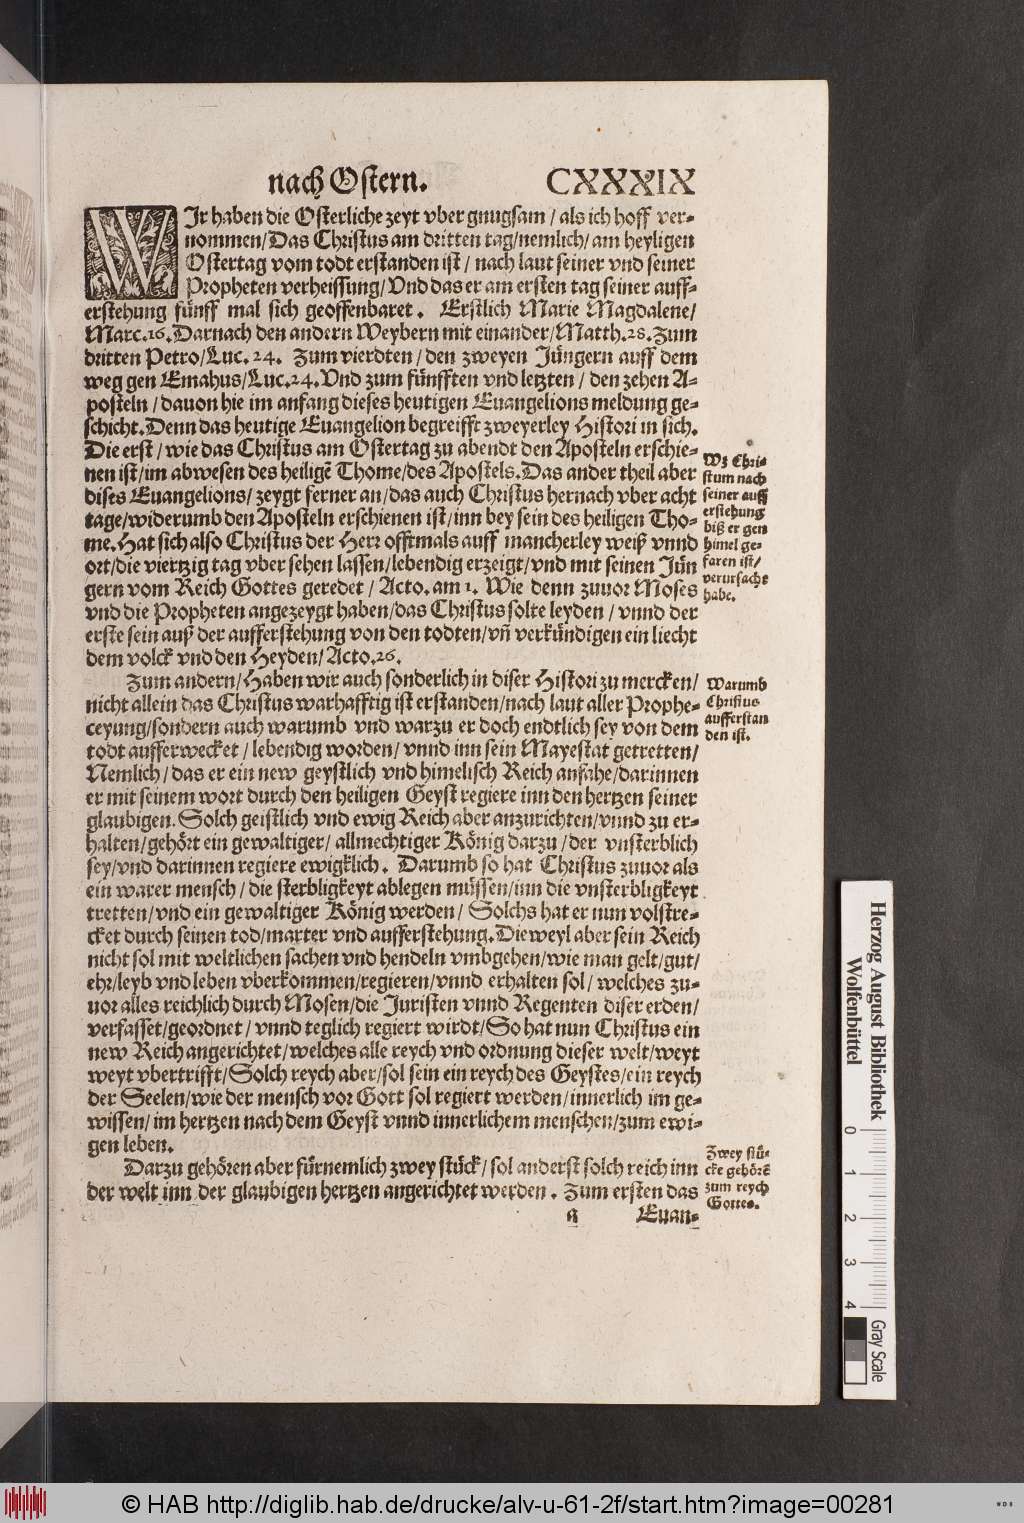 nach Ostern. CXXXIX
WIr haben die Osterliche zeyt vber gnugsam / als ich hoff ver-
nommen/Das Christus am dritten tag/nemlich/am heyligen
Ostertag vom todt erstanden ist / nach laut seiner vnd seiner
Propheten verheissung/Vnd das er am ersten tag seiner auff-
erstehung fünff mal sich geoffenbaret . Erstlich Marie Magdalene/
Marc.16.Darnach den andern Weybern mit einander/Matth.28.Zum
dritten Petro/Luc. 24. Zum vierdten / den zweyen Jüngern auff dem
weg gen Emahus/Luc.24.Vnd zum fünfften vnd letzten / den zehen A-
posteln / dauon hie im anfang dieses heutigen Euangelions meldung ge-
schicht.Denn das heutige Euangelion begreifft zweyerley Histori in sich.
Die erst / wie das Christus am Ostertag zu abendt den Aposteln erschie-
nen ist/im abwesen des heiligē Thome/des Apostels.Das ander theil aber
dises Euangelions/ zeygt ferner an/das auch Christus hernach vber acht
tage/widerumb den Aposteln erschienen ist/inn bey sein des heiligen Tho-
me.Hat sich also Christus der Herr offtmals auff mancherley weiß vnnd
ort/die viertzig tag vber sehen lassen/lebendig erzeigt/vnd mit seinen Jün
gern vom Reich Gottes geredet / Acto. am 1. Wie denn zuuor Moses
vnd die Propheten angezeygt haben/das Christus solte leyden / vnnd der
erste sein auß der aufferstehung von den todten/vñ verkündigen ein liecht
dem volck vnd den Heyden/Acto.26.
Zum andern/Haben wir auch sonderlich in diser Histori zu mercken/
nicht allein das Christus warhafftig ist erstanden/nach laut aller Prophe-
ceyung/sondern auch warumb vnd warzu er doch endtlich sey von dem
todt aufferwecket / lebendig worden/ vnnd inn sein Mayestat getretten/
Nemlich/das er ein new geystlich vnd himelisch Reich anfahe/darinnen
er mit seinem wort durch den heiligen Geyst regiere inn den hertzen seiner
glaubigen. Solch geistlich vnd ewig Reich aber anzurichten/vnnd zu er-
halten/gehört ein gewaltiger/ allmechtiger König darzu/der vnsterblich
sey/vnd darinnen regiere ewigklich. Darumb so hat Christus zuuor als
ein warer mensch / die sterbligkeyt ablegen müssen/inn die vnsterbligkeyt
tretten/vnd ein gewaltiger König werden/ Solchs hat er nun volstre-
cket durch seinen tod/marter vnd aufferstehung.Dieweyl aber sein Reich
nicht sol mit weltlichen sachen vnd hendeln vmbgehen/wie man gelt/gut/
ehr/leyb vnd leben vberkommen/regieren/vnnd erhalten sol/ welches zu-
uor alles reichlich durch Mosen/die Juristen vnnd Regenten diser erden/
verfasset/geordnet / vnnd teglich regiert wirdt/So hat nun Christus ein
new Reich angerichtet/welches alle reych vnd ordnung dieser welt/weyt
weyt vbertrifft/Solch reych aber/sol sein ein reych des Geystes/ein reych
der Seelen/wie der mensch vor Gott sol regiert werden/innerlich im ge-
wissen/im hertzen nach dem Geyst vnnd innerlichem menschen/zum ewi-
gen leben.
Darzu gehören aber fürnemlich zwey stück/ sol anderst solch reich inn
der welt inn der glaubigen hertzen angerichtet werden . Zum ersten das
a Euan-
Wz Chri-
stum nach
seiner auff
erstehung
biß er gen
himel ge-
faren ist/
verursacht
habe.
Warumb
Christus
aufferstan
den ist.
Zwey stü-
cke gehörē
zum reych
Gottes.
Herzog August Bibliothek
Wolfenbüttel
0 1 2 3 4
Gray Scale
© HAB http://diglib.hab.de/drucke/alv-u-61-2f/start.htm?image=00281